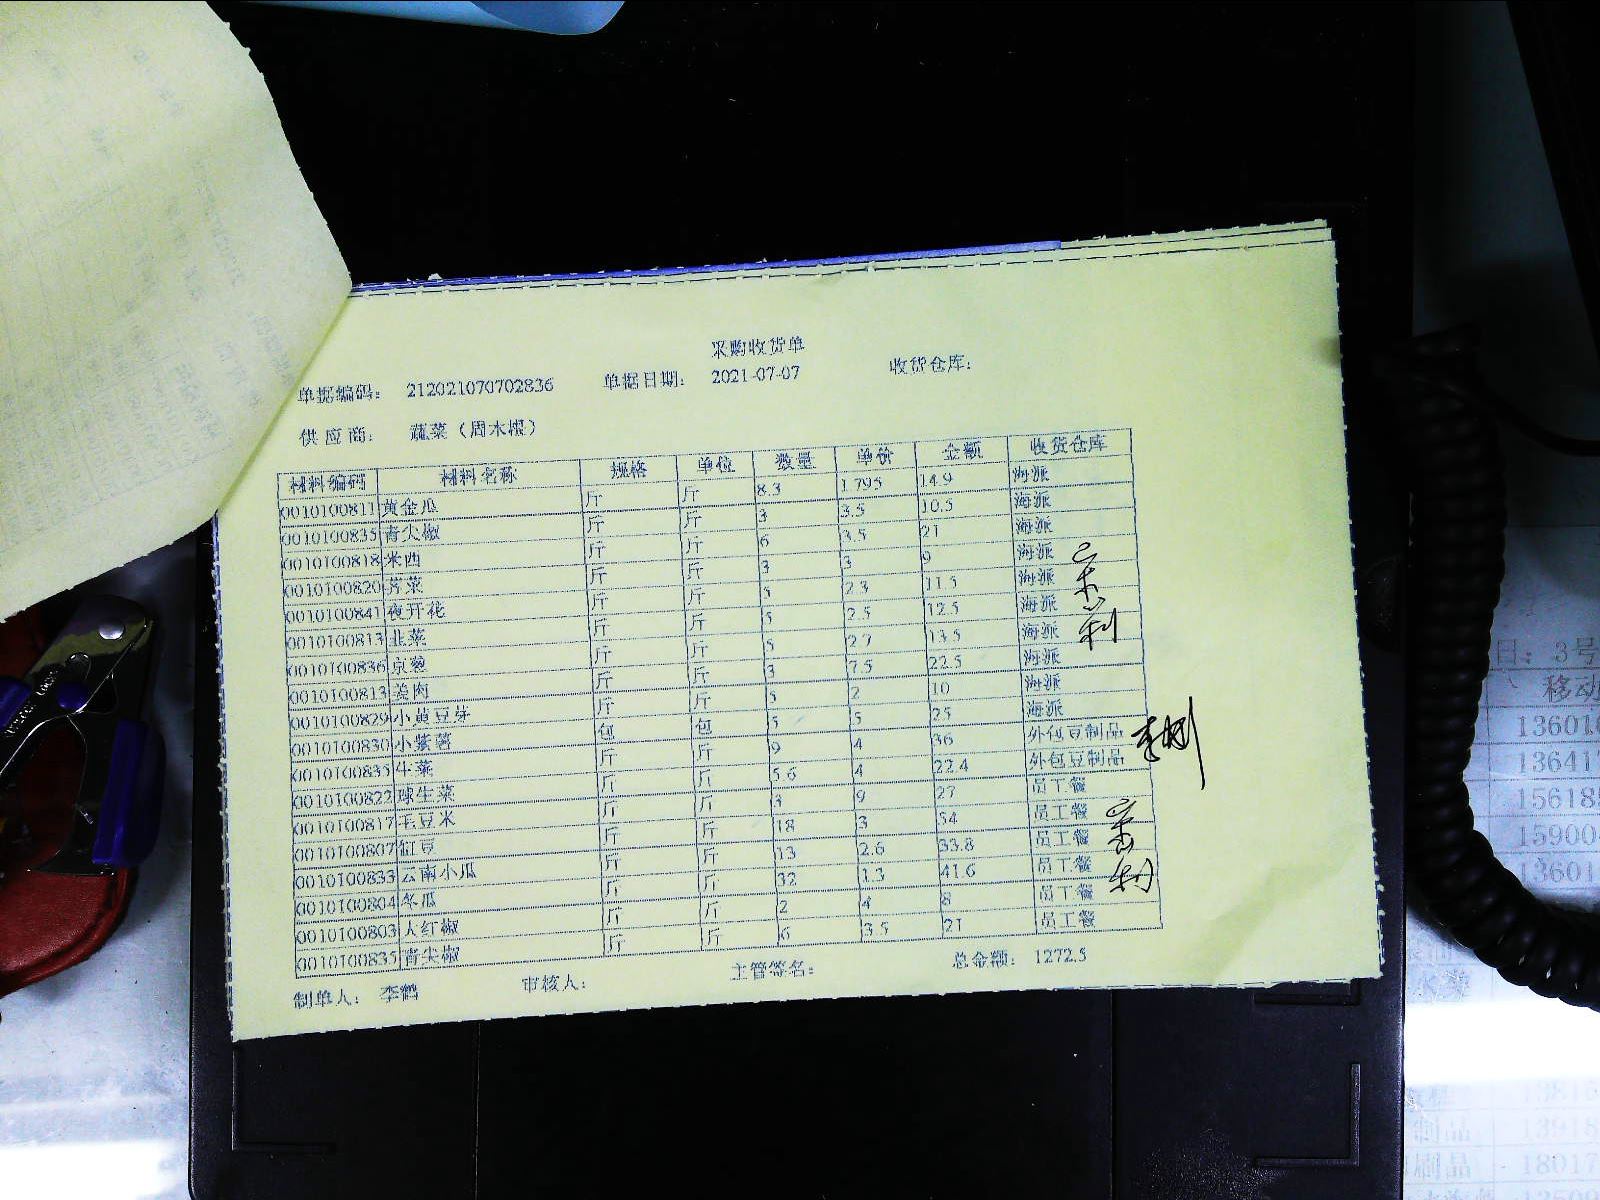 采购收货单
单据编码： 212021070702836 单据日期： 2021-07-07 收货仓库：
供应商： 蔬菜（周木根）
材料编码 材料名称 规格 单位 数量 单价 金额 收货仓库
0010100811 黄金瓜 斤 斤 8.3 1.795 14.9 海派
0010100835 青尖椒 斤 斤 3 3.5 10.5 海派
0010100818 米西 斤 斤 6 3.5 21 海派
0010100820 芹菜 斤 斤 3 3 9 海派
0010100841 夜开花 斤 斤 5 2.3 11.5 海派
0010100813 韭菜 斤 斤 5 2.5 12.5 海派
0010100836 京葱 斤 斤 5 2.7 13.5 海派
0010100813 姜肉 斤 斤 3 7.5 22.5 海派
0010100829 小黄豆芽 斤 斤 5 2 10 海派
0010100830 小紫薯 斤 斤 5 5 25 海派
0010100835 生菜 包 包 9 4 36 外包豆制品
0010100822 球生菜 斤 斤 5.6 4 22.4 外包豆制品
0010100817 毛豆米 斤 斤 3 9 27 员工餐
0010100807 缸豆 斤 斤 18 3 54 员工餐
0010100833 云南小瓜 斤 斤 13 2.6 33.8 员工餐
0010100804 冬瓜 斤 斤 32 1.3 41.6 员工餐
0010100803 大红椒 斤 斤 2 4 8 员工餐
0010100835 青尖椒 斤 斤 6 3.5 21 员工餐
制单人： 李鹤 审核人： 主管签名： 总金额： 1272.5
日： 3号
移动
1360
1364
1561
1590
1360
制品
刷品
1801